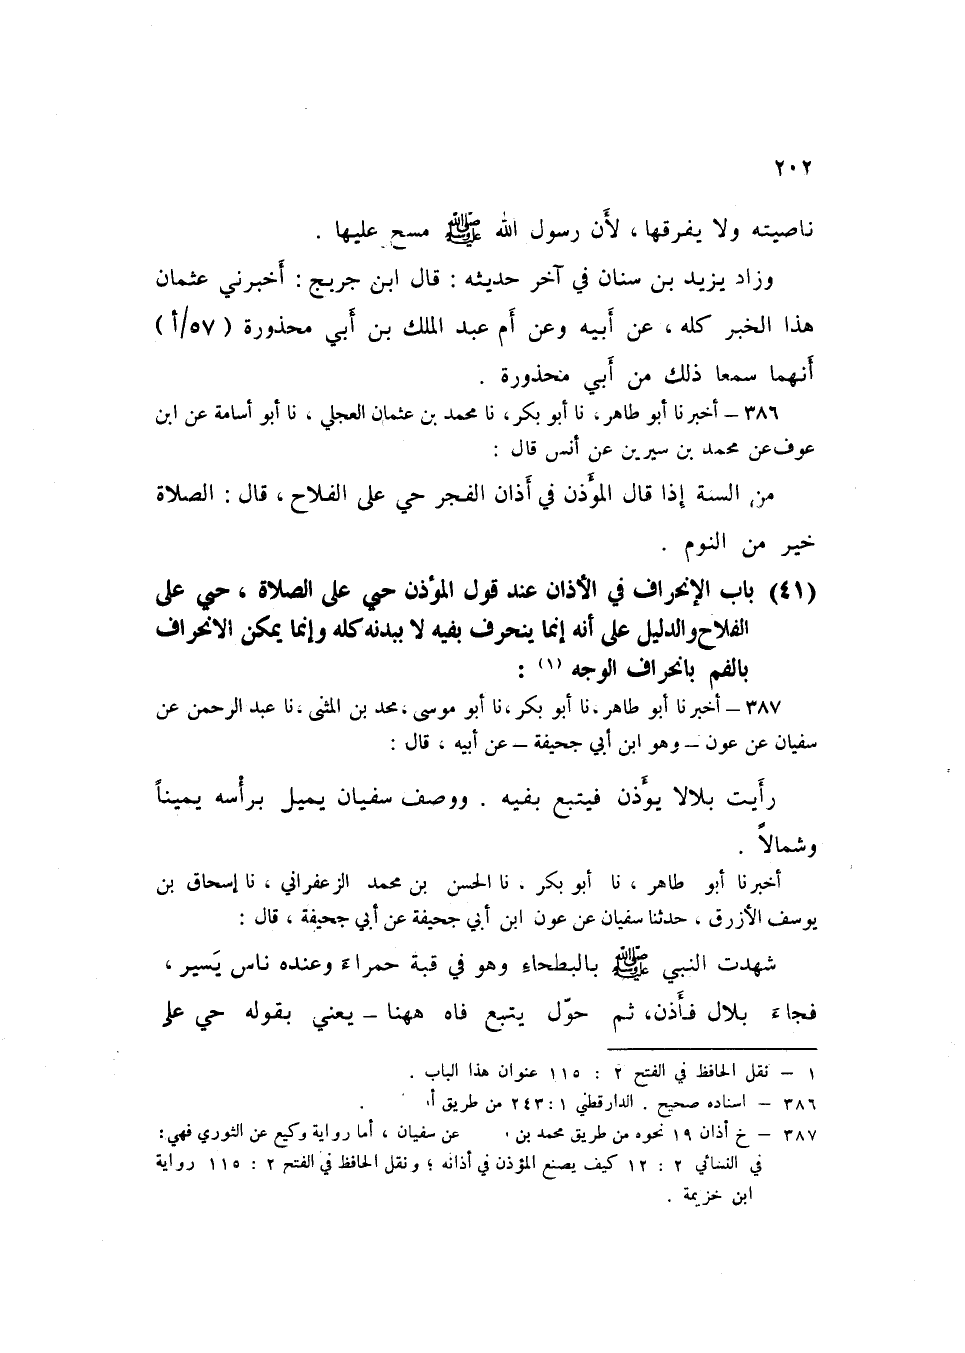 ٢٠٢
ناصيته ولا يفرقها ، لأَن رسول الله ﷺ مسح عليها .
وزاد يزيد بن سنان في آخر حديثه : قال ابن جريج : أَخبرني عثمان
هذا الخبر كله ، عن أَبيه وعن أَم عبد الملك بن أَبي محذورة ( ٥٧/أ )
أَنهما سمعا ذلك من أَبي محذورة .
٣٨٦ – أخبرنا أبو طاهر ، نا أبو بكر ، نا محمد بن عثمان العجلي ، نا أبو أسامة عن ابن
عوف عن محمد بن سيرين عن أنس قال :
من السنة إذا قال المؤَذن في أَذان الفجر حي على الفلاح ، قال : الصلاة
خير من النوم .
(٤١) باب الإنحراف في الأذان عند قول المؤذن حي على الصلاة ، حي على
الفلاح والدليل على أنه إنما ينحرف بفيه لا ببدنه كله وإنما يمكن الانحراف
بالفم بانحراف الوجه (١) :
٣٨٧ – أخبرنا أبو طاهر ، نا أبو بكر ، نا أبو موسى ، محمد بن المثنى ، نا عبد الرحمن عن
سفيان عن عون – وهو ابن أبي جحيفة – عن أبيه ، قال :
رأَيت بلالا يؤَذن فيتبع بفيه . ووصف سفيان يميل برأْسه يميناً
وشمالاً .
أخبرنا أبو طاهر ، نا أبو بكر . نا الحسن بن محمد الزعفراني ، نا إسحاق بن
يوسف الأزرق ، حدثنا سفيان عن عون ابن أبي جحيفة عن أبي جحيفة ، قال :
شهدت النبي ﷺ بالبطحاءِ وهو في قبة حمراءَ وعنده ناس يَسير ،
فجاءَ بلال فأَذن، ثم حوّل يتبع فاه ههنا – يعني بقوله حي على
١ – نقل الحافظ في الفتح ٢ : ١١٥ عنوان هذا الباب .
٣٨٦ – اسناده صحيح . الدارقطني ١ : ٢٤٣ من طريق أ .
٣٨٧ – خ أذان ١٩ نحوه من طريق محمد بن عن سفيان ، أما رواية وكيع عن الثوري فهي :
في النسائي ٢ : ١٢ كيف يصنع المؤذن في أذانه ؛ ونقل الحافظ في الفتح ٢ : ١١٥ رواية
ابن خزيمة .